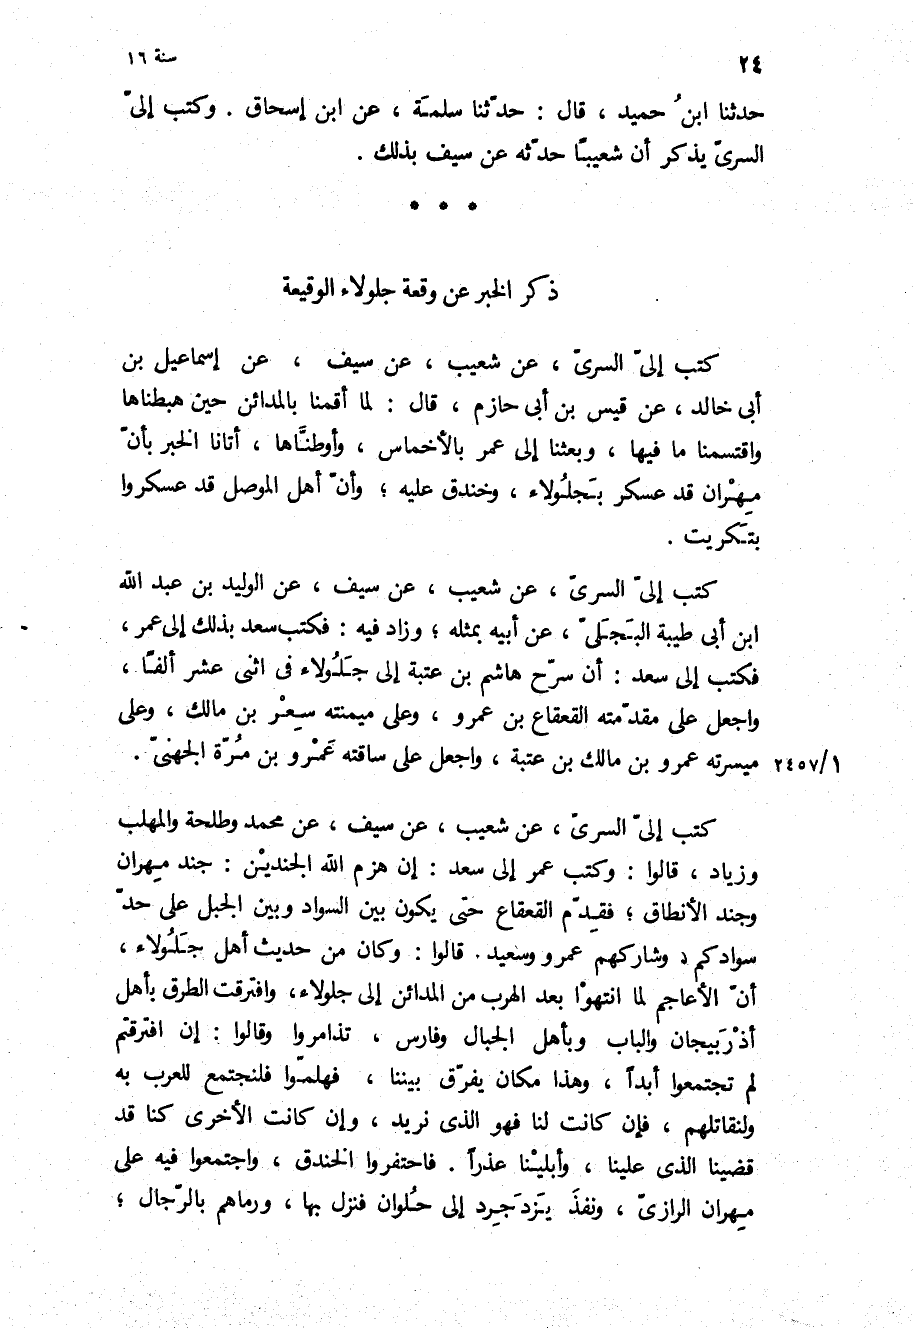 ٢٤
سنة ١٦
حدثنا ابنُ حميد ، قال : حدّثنا سلمـَة ، عن ابن إسحاق . وكتب إلىّ
السرىّ يذكر أن شعيبـًا حدّثه عن سيف بذلك .
* * *
ذكر الخبر عن وقعة جلولاء الوقيعة
كتب إلىّ السرىّ ، عن شعيب ، عن سيف ، عن إسماعيل بن
أبى خالد ، عن قيس بن أبى حازم ، قال : لما أقمنا بالمدائن حين هبطناها
واقتسمنا ما فيها ، وبعثنا إلى عمر بالأخماس ، وأوطنَّاها ، أتانا الخبر بأنّ
مـِهـْران قد عسكر بـَجلـُولاء ، وخندق عليه ؛ وأنّ أهل الموصل قد عسكروا
بتـَكريت .
كتب إلىّ السرىّ ، عن شعيب ، عن سيف ، عن الوليد بن عبد الله
ابن أبى طيبة البـَجـَلىّ ، عن أبيه بمثله ؛ وزاد فيه : فكتب سعد بذلك إلى عمر ،
فكتب إلى سعد : أن سرّح هاشم بن عتبة إلى جـَلـُولاء فى اثنى عشر ألفـًا ،
واجعل على مقدّمته القعقاع بن عمرو ، وعلى ميمنته سـِعـْر بن مالك ، وعلى
ميسرته عمرو بن مالك بن عتبة ، واجعل على ساقته عَمـْرو بن مـُرّة الجهنىّ .
٢٤٥٧/١
كتب إلىّ السرىّ ، عن شعيب ، عن سيف ، عن محمد وطلحة والمهلب
وزياد ، قالوا : وكتب عمر إلى سعد : إن هزم الله الجنديـْن : جند مـِهران
وجند الأنطاق ؛ فقـدّم القعقاع حتى يكون بين السواد وبين الجبل على حدّ
سوادكم ، وشاركهم عمرو وسعيد . قالوا : وكان من حديث أهل جـَلـُولاء ،
أنّ الأعاجم لما انتهوْا بعد الهرب من المدائن إلى جلولاء ، وافترقت الطرق بأهل
أذْرَبيجان والباب وبأهل الجبال وفارس ، تذامروا وقالوا : إن افترقتم
لم تجتمعوا أبداً ، وهذا مكان يفرّق بيننا ، فهلمـّوا فلنجتمع للعرب به
ولنقاتلهم ، فإن كانت لنا فهو الذى نريد ، وإن كانت الأخرى كنا قد
قضينا الذى علينا ، وأبليـْنا عذراً . فاحتفروا الخندق ، واجتمعوا فيه على
مـِهران الرازىّ ، ونفذَ يـَزدَجـِرد إلى حـُلوان فنزل بها ، ورماهم بالرّجال ؛